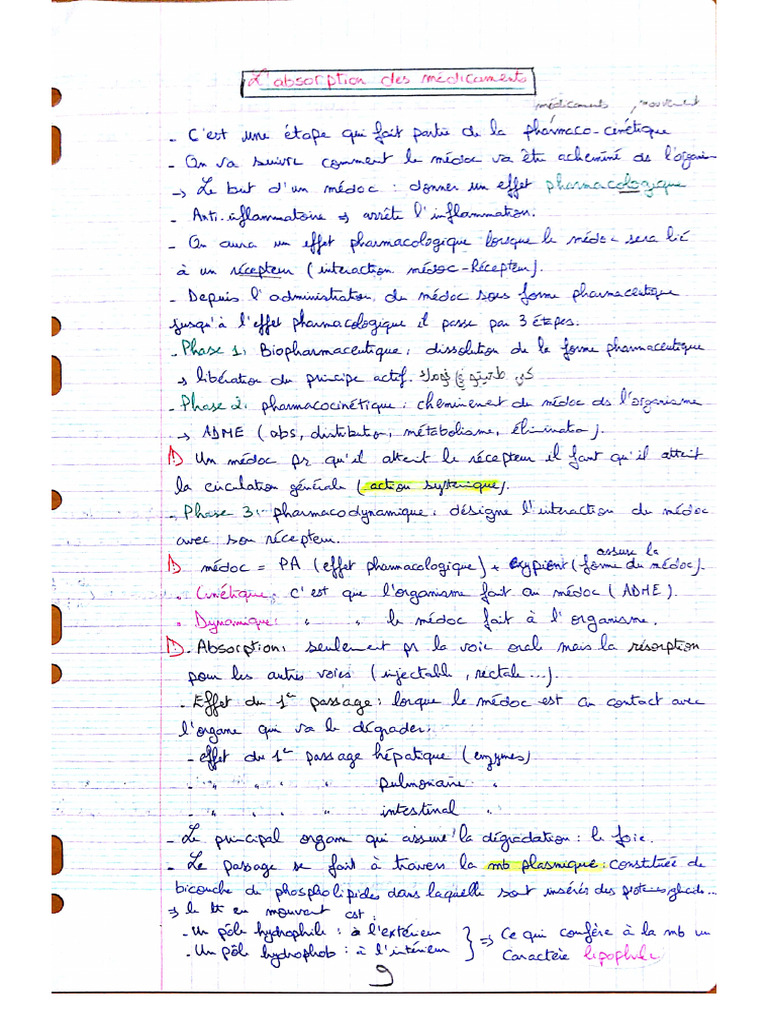 L'absorption des médicaments
médicaments , mouvement
- C'est une étape qui fait partie de la pharmaco-cinétique
- On va suivre comment le médoc va être acheminé de l'organi
→ Le but d'un médoc : donner un effet pharmacologique
- Anti-inflammatoire → arrête l'inflammation.
- On aura un effet pharmacologique lorsque le médoc sera lié
à un récepteur (interaction médoc-Récepteur).
- Depuis l'administration du médoc sous forme pharmaceutique
jusqu'à l'effet pharmacologique il passe par 3 étapes.
- Phase 1: Biopharmaceutique : dissolution de la forme pharmaceutique
→ libération du principe actif.
- Phase 2: pharmacocinétique : cheminement du médoc ds l'organisme
→ ADME (abs, distribution, métabolisme, élimination).
⚠ Un médoc pr qu'il atteit le récepteur il faut qu'il atteit
la circulation générale (action systémique).
- Phase 3: pharmacodynamique : désigne l'interaction du médoc
avec son récepteur.
assure la
⚠ médoc = PA (effet pharmacologique) + exypient (forme du médoc).
• Cinétique : c'est que l'organisme fait au médoc (ADME).
• Dynamique : " " le médoc fait à l'organisme.
⚠ - Absorption : seulement pr la voie orale mais la résorption
pour les autres voies (injectable, rectale...).
- Effet du 1er passage : lorque le médoc est au contact avec
l'organe qui va le dégrader.
- effet du 1er passage hépatique (enzymes)
- " " " " pulmonaire "
- " " " " intestinal "
- Le principal organe qui assure la dégradation : le foie.
- Le passage se fait à travers la mb plasmique : constituée de
bicouche de phospholipides dans laquelle sont insérés des proteines glucido...
⇒ le tt en mouvant est :
- Un pôle hydrophile : à l'extérieur
- Un pôle hydrophob : à l'intérieur } ⇒ Ce qui confère à la mb un
Caractère lipophile
9